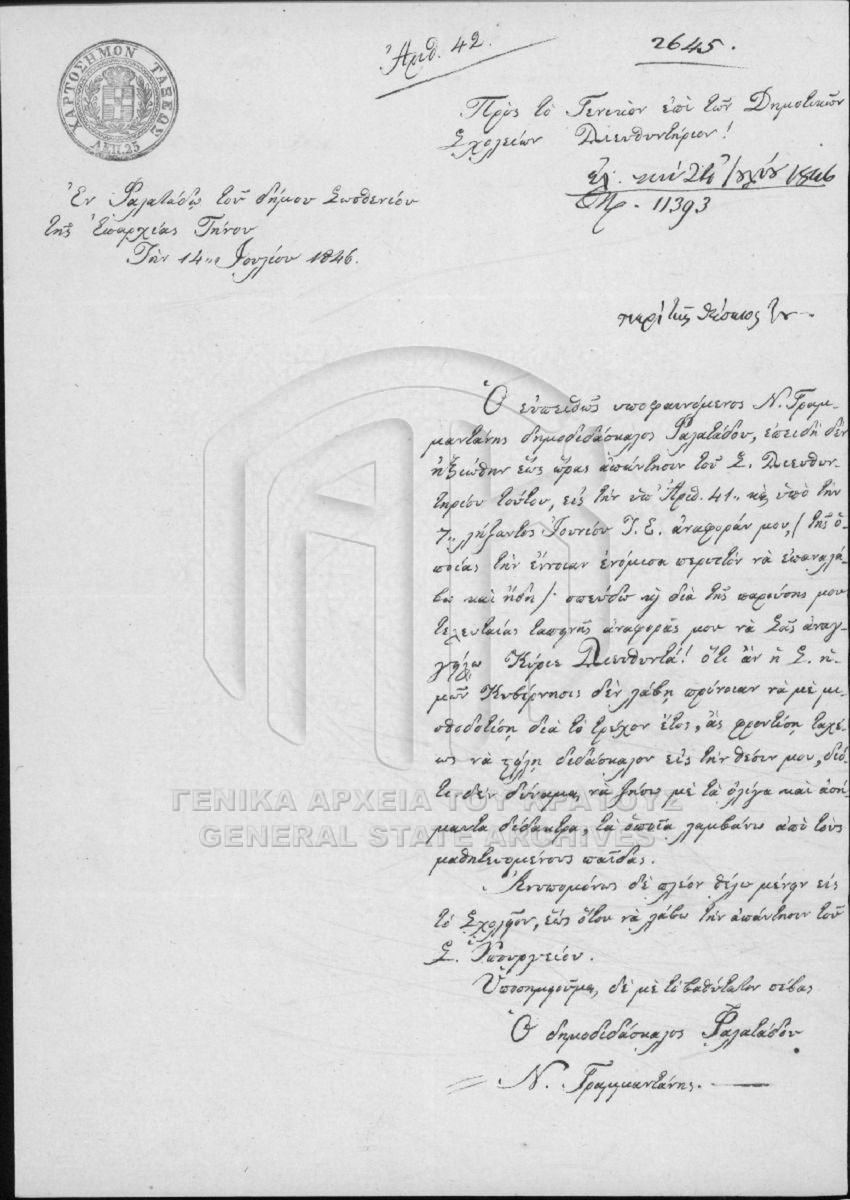 ΧΑΡΤΟΣΗΜΟΝ ΤΑΞΕΩΣ
ΛΕΠ. 25
Ἀριθ. 42.
2645.
Πρὸς τὸ Γενικὸν ἐπὶ τῶν Δημοτικῶν
Σχολείων Διευθυντήριον!
1846
11393
Ἐν Φαλατάδῳ τοῦ δήμου Σωσθενίου
τῆς Ἐπαρχίας Τήνου
Τὴν 14ην Ἰουλίου 1846.
περὶ τῆς θέσεως
Ὁ εὐπειθῶς υποφαινόμενος Ν. Γραμ-
μαντάνης δημοδιδάσκαλος Φαλατάδου, ἐπειδὴ δὲν
ἠξιώθην ἕως ὥρας ἀπάντησιν τοῦ Σ. Διευθυν-
τηρίου τούτου, εἰς τὴν ὑπ' Ἀριθ. 41 κ ὑπὸ τὴν
7 λήξαντος Ἰουνίου Ἰ. Ἐ. ἀναφοράν μου, /τῆς ὁ-
ποίας τὴν ἔννοιαν ἐνόμισα περιττὸν νὰ ἐπαναλά-
βω καὶ ἤδη/ σπεύδω κ διὰ τῆς παρούσης μου
τελευταίας ταπεινῆς ἀναφορᾶς μου νὰ Σᾶς ἀναγ-
γείλω Κύριε Διευθυντά! ὅτι ἂν ἡ Σ. ἡ-
μῶν Κυβέρνησις δὲν λάβῃ πρόνοιαν νὰ μὲ μι-
σθοδοτήσῃ διὰ τὸ τρέχον ἔτος, ἂς φροντίσῃ ταχέ-
ως νὰ στείλῃ διδάσκαλον εἰς τὴν θέσιν μου, διό-
τι δὲν δύναμαι νὰ ζήσω μὲ τὰ ὀλίγα καὶ ἀσή-
μαντα δίδακτρα, τὰ ὁποῖα λαμβάνω ἀπὸ τοὺς
μαθητευομένους παῖδας.
Ἀνυπομόνως δὲ πλέον θέλω μένει εἰς
τὸ Σχολεῖον, ἕως ὅτου νὰ λάβω τὴν ἀπάντησιν τοῦ
Σ. Ὑπουργείου.
Ὑποσημειοῦμαι δὲ μὲ τὸ βαθύτατον σέβας
Ὁ δημοδιδάσκαλος Φαλατάδου
Ν. Γραμμαντάνης.
ΓΕΝΙΚΑ ΑΡΧΕΙΑ ΤΟΥ ΚΡΑΤΟΥΣ
GENERAL STATE ARCHIVES